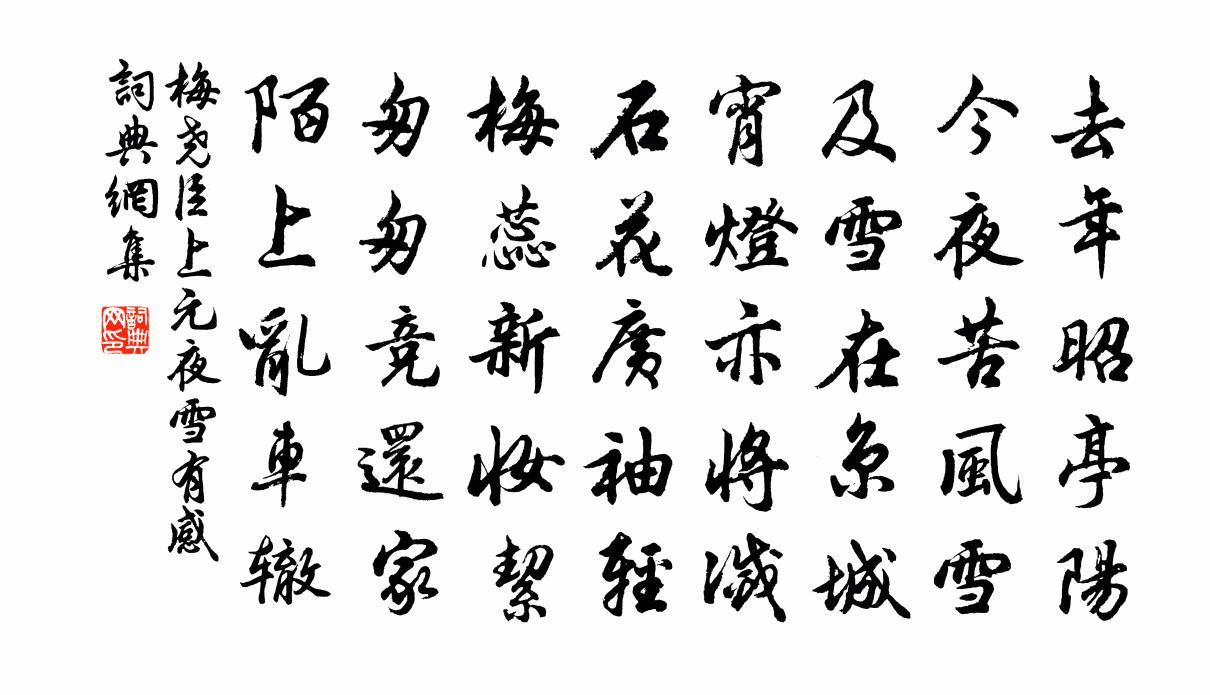 去年昭亭陽
今夜苦風雪
及雪在京城
宵燈亦將滅
石花廣袖輕
梅蕊新妝潔
匆匆竞還家
陌上亂車辙
梅尧臣上元夜雪有感
詞典網集
詞典
网印